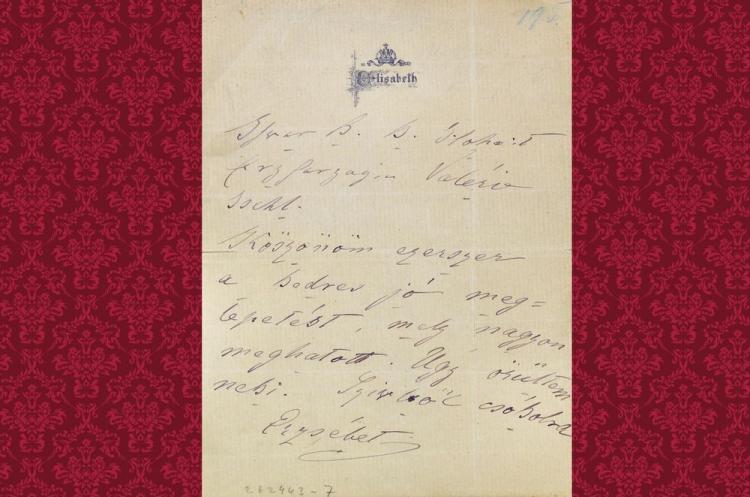 195.
Elisabeth
Ihrer k. k. Hoheit
Erzherzogin Valérie
Ischl.
Köszönöm ezerszer
a kedves jó meg=
lepetést, mely nagyon
meghatott. Ugy örültem
neki. Szivből csókolva
Erzsébet
262943-7